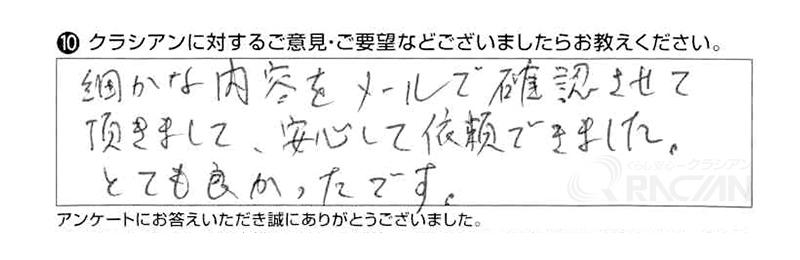 ⑩ クラシアンに対するご意見・ご要望などございましたらお教えください。
細かな内容をメールで確認させて
頂きまして、安心して依頼できました。
とても良かったです。
くらし安心クラシアン
QRACIAN
アンケートにお答えいただき誠にありがとうございました。